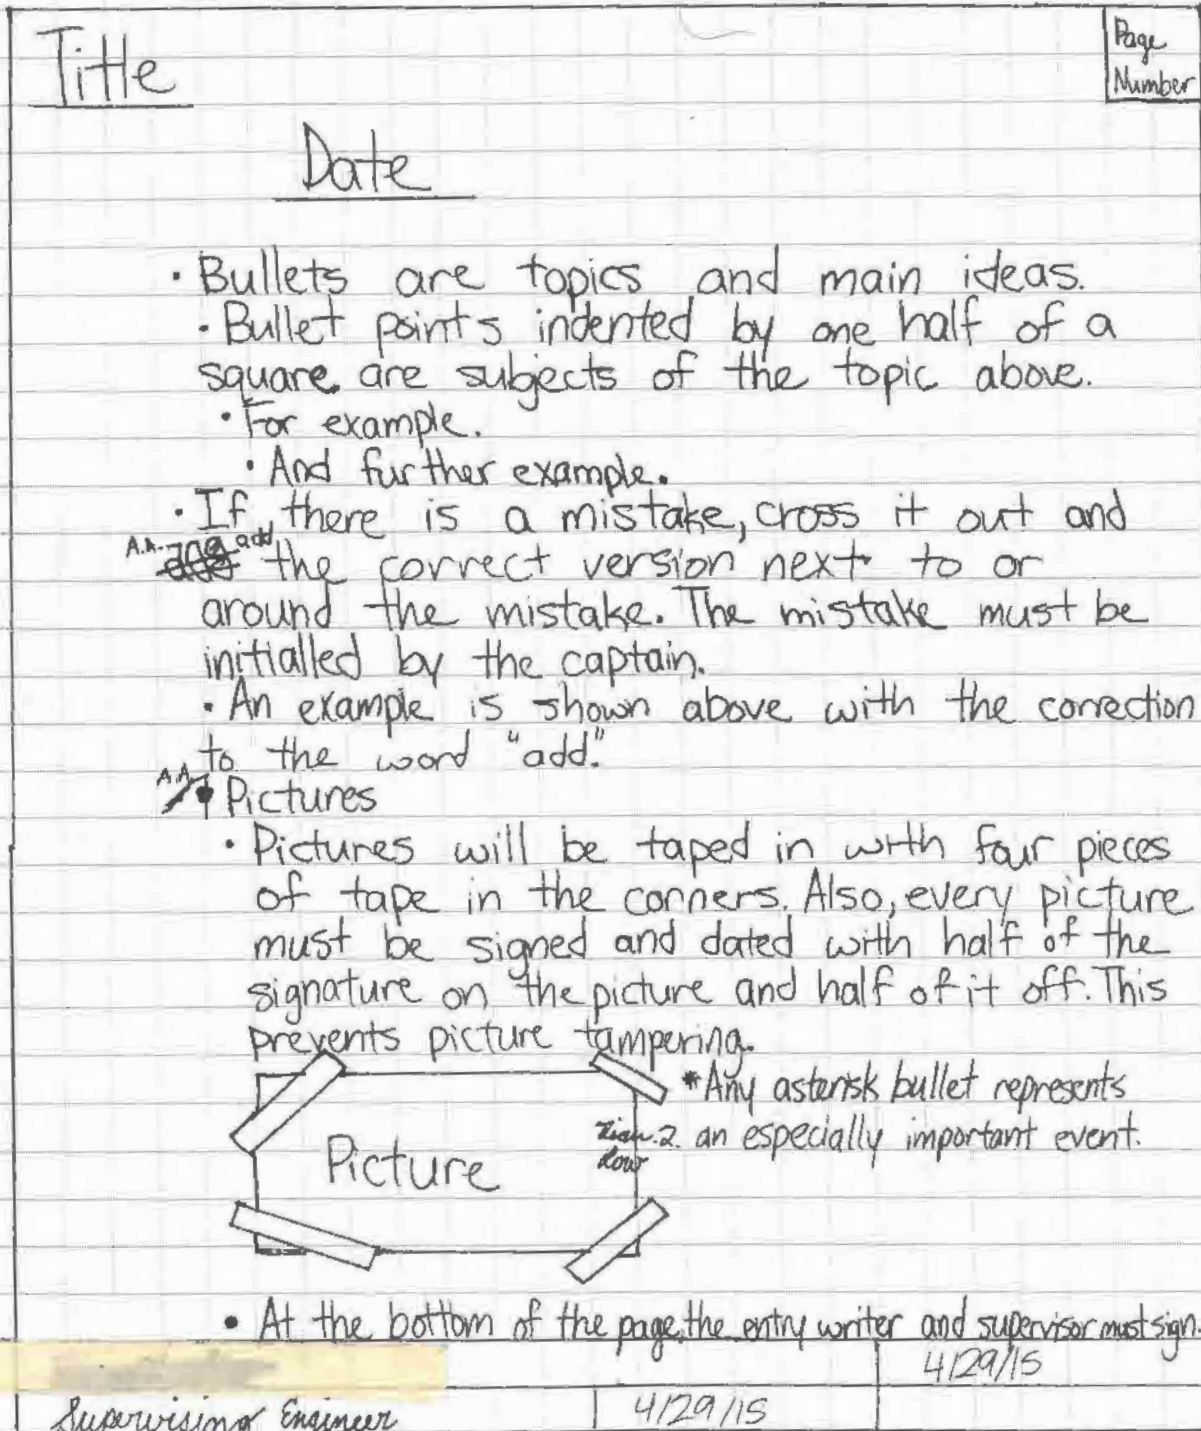 Title
Page
Number
Date
• Bullets are topics and main ideas.
• Bullet points indented by one half of a
square are subjects of the topic above.
• For example.
• And further example.
• If there is a mistake, cross it out and
A.A. add the correct version next to or
around the mistake. The mistake must be
initialled by the captain.
• An example is shown above with the correction
to the word "add."
A.A.
• Pictures
• Pictures will be taped in with four pieces
of tape in the corners. Also, every picture
must be signed and dated with half of the
signature on the picture and half of it off. This
prevents picture tampering.
* Any asterisk bullet represents
an especially important event.
Picture
• At the bottom of the page, the entry writer and supervisor must sign.
4/29/15
Supervising Engineer 4/29/15